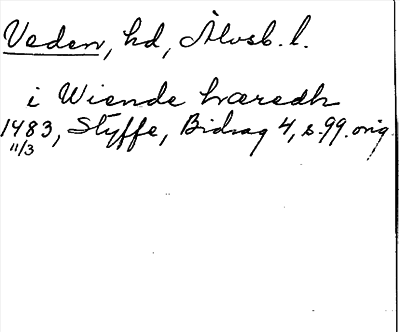 Veden, hd, Älvsb. l.
i Wiende hæredh
1483, Styffe, Bidrag 4, s. 99. orig.
11/3